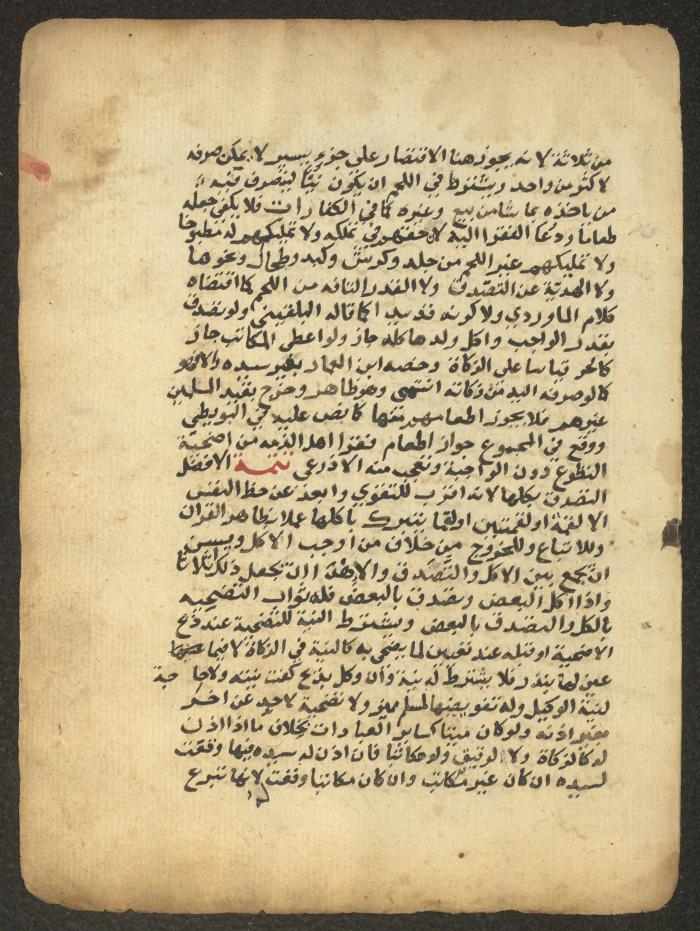 من ثلاثة لانه يجوز هنا الاقتصار على جزء يسير لا يمكن صرفه
لاكثر من واحد ويشترط في اللحم ان يكون نيئا ليتصرف فيه
من ياخذه بما شا من بيع وغيره كما في الكفارات فلا يكفي جعله
طعاما ودعا الفقرا اليه لان حقهم في تملكه ولا تمليكهم له مطبوخا
ولا تمليكهم غير اللحم من جلد وكرش وكبد وطحال ونحوها
ولا الهدية عن التصدق ولا القدر التافه من اللحم كما اقتضاه
كلام الماوردي ولا كونه قديدا كما قاله البلقيني ولو تصدق
بقدر الواجب واكل ولدها كله جاز ولو اعطى المكاتب جاز
كالحر قياسا على الزكاة وخصه ابن العماد بغير سيده والا فهو
كما لو صرفه اليه من زكاته انتهى وهو ظاهر وخرج بقيد المسلمين
غيرهم فلا يجوز اطعامهم منها كما نص عليه في البويطي
ووقع في المجموع جواز اطعام فقرا اهل الذمة من اضحية
التطوع دون الواجبة وتعجب منه الاذرعي تتمة الافضل
التصدق بكلها لانه اقرب للتقوي وابعد عن حظ النفس
الا لقمة او لقمتين او لقما يتبرك باكلها عملا بظاهر القران
وللاتباع وللخروج من خلاف من اوجب الاكل ويسن
ان جمع بين الاكل والتصدق والاهدا ان يجعل ذلك اثلاثا
واذا اكل البعض وتصدق بالبعض فله ثواب التضحية
بالكل والتصدق بالبعض ويشترط النية للتضحية عند ذبح
الاضحية او قبله عند تعيين لما يضحي به كالنية في الزكاة لا فيما
عين لها بنذر فلا يشترط له نية وان وكل بذبح كفت نيته ولا حاجة
لنية الوكيل وله تفويضها لمسلم مميز ولا تضحية لاحد عن اخر
بغير اذنه ولو كان ميتا كساير العبادات بخلاف ما اذا اذن
له كالزكاة ولا لرقيق ولو مكاتبا فان اذن له سيده فيها وقعت
لسيده ان كان غير مكاتب وان كان مكاتبا وقعت له لانها تبرع